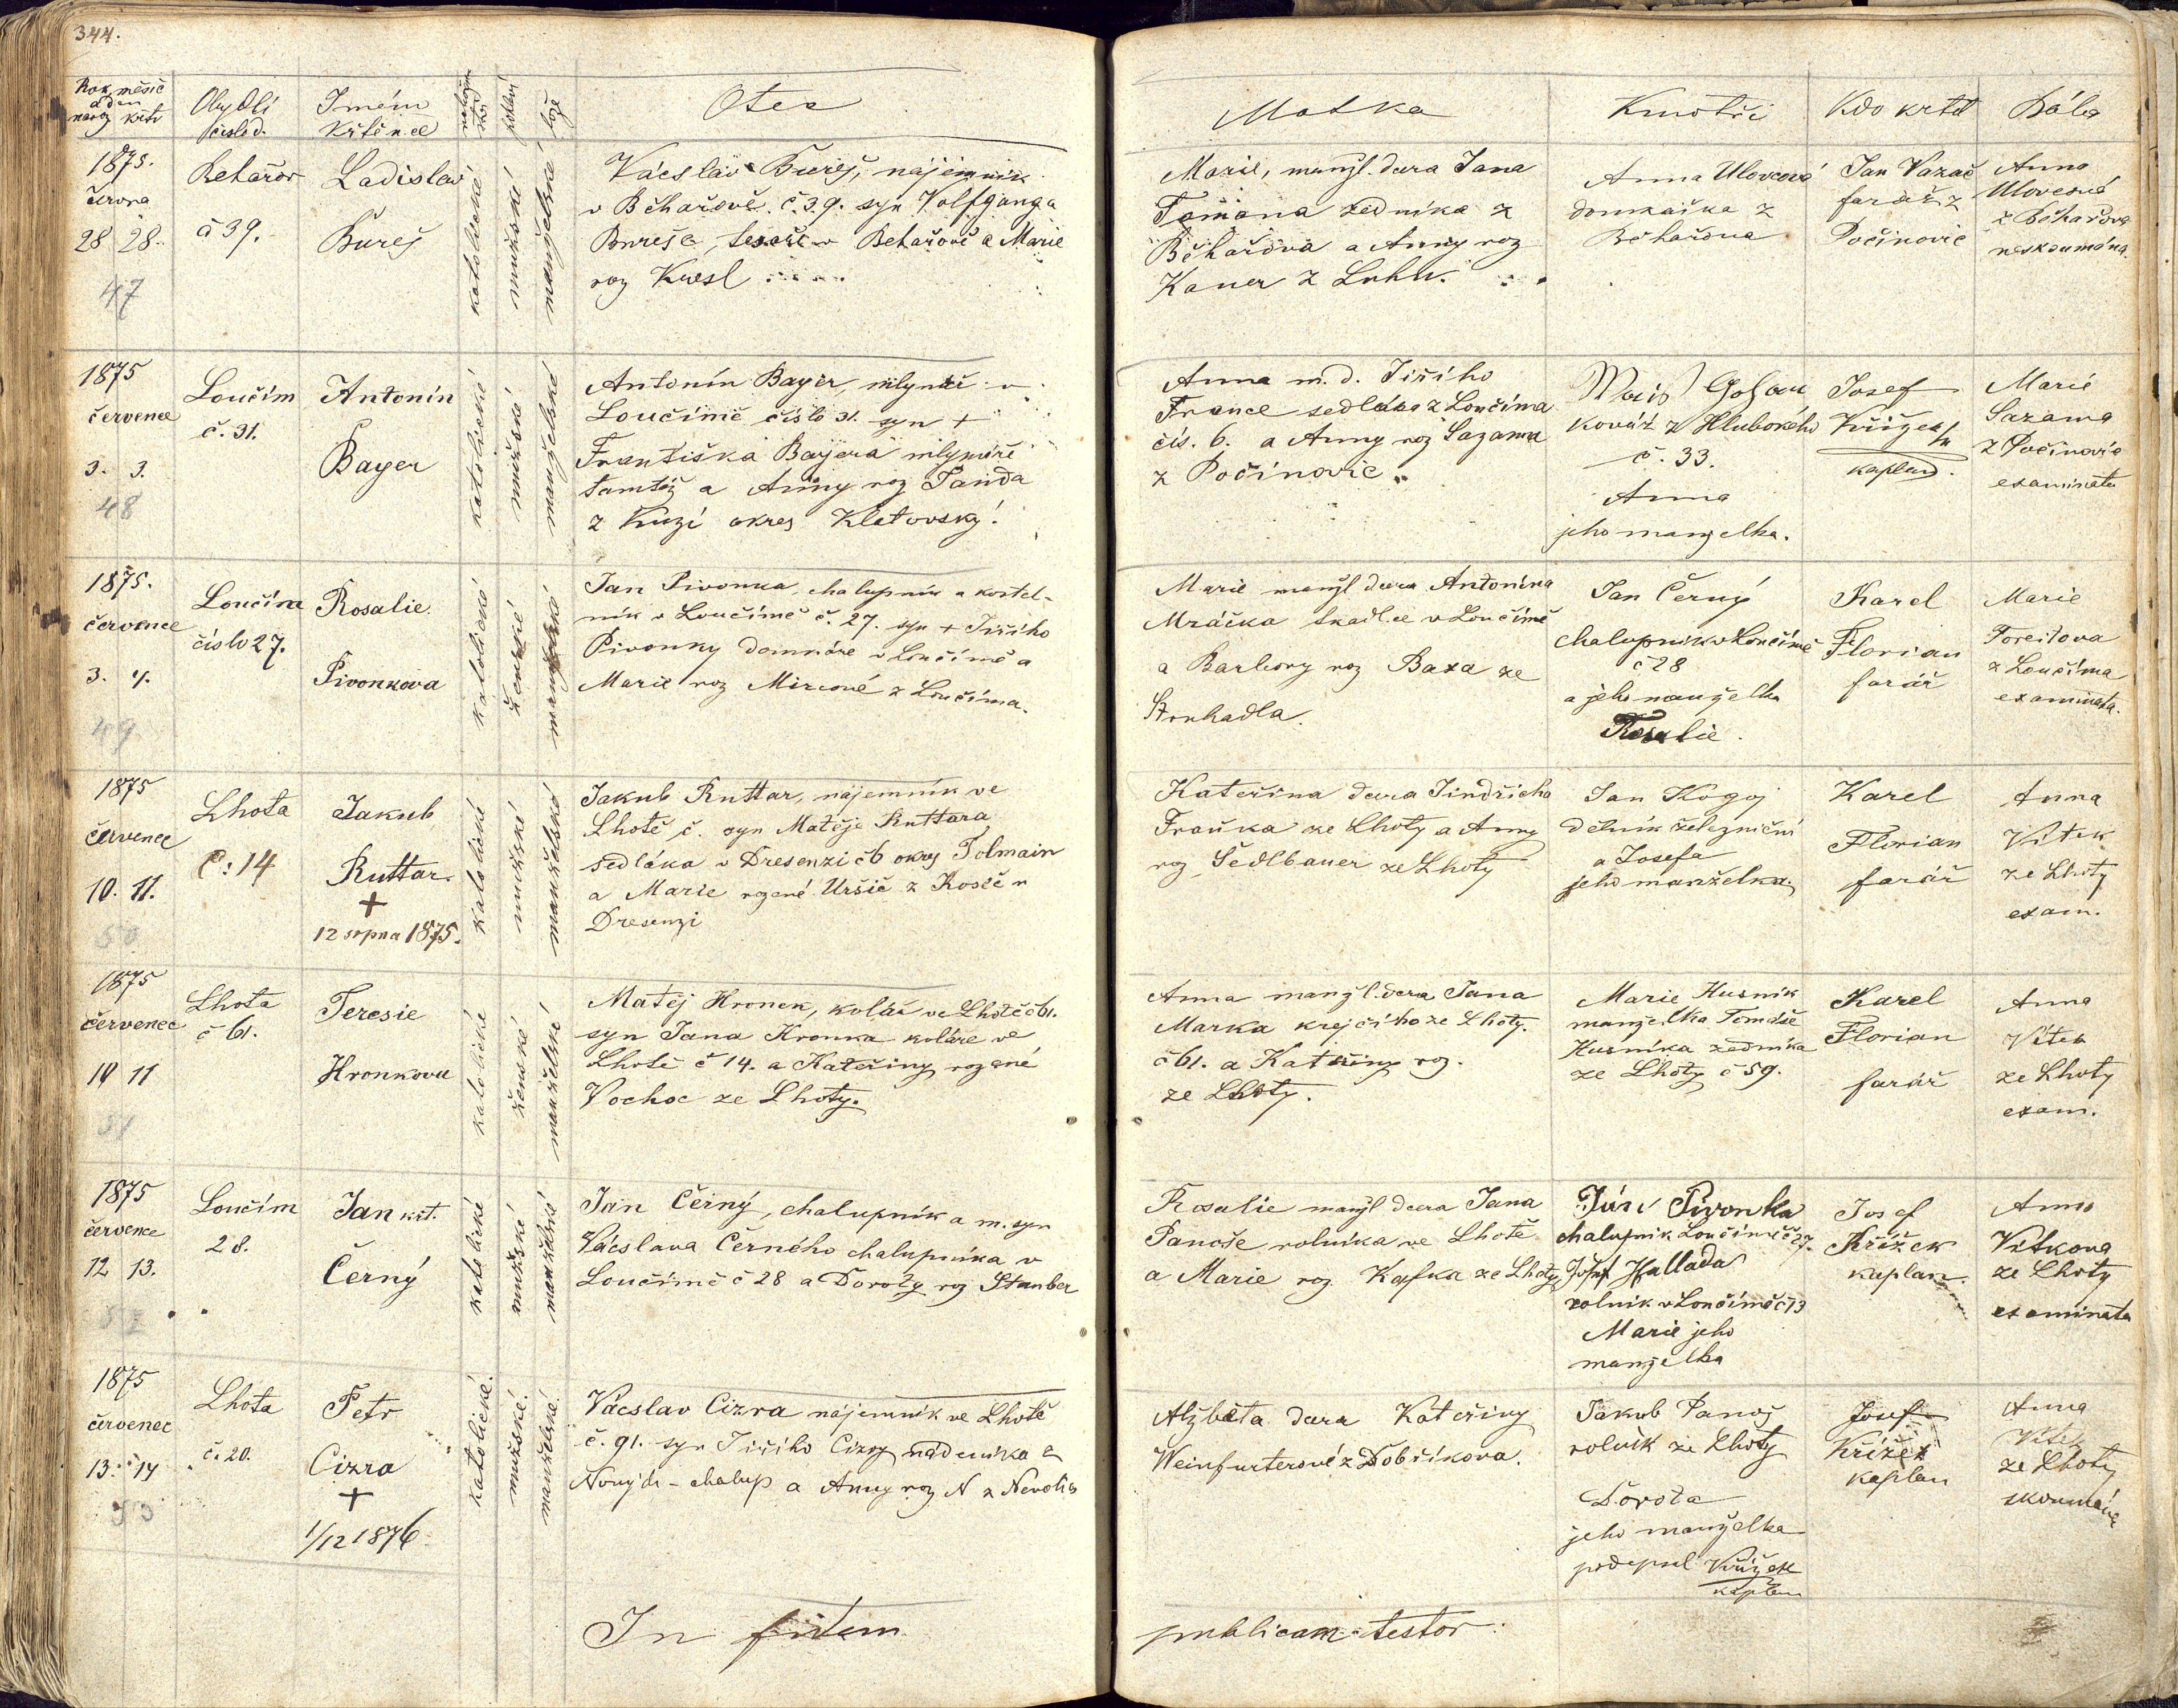 344.
Rok měsíc
a den
naroz křtu
Obydlí
číslo d.
Iméno
křtěnce
pohlaví
lože
Otec
Matka
Kmotři
Kdo křtil
Bába
1875.
června
28 28.
47
Behařov
č 39.
Ladislav
Bureš
katolické
mužské
manželské
Václav Bureš, nájemník
v Běhařově č. 39. syn Volfganga
Bureše, tesaře v Behařově a Marie
roz Kwesl
Marie, manžl. dcera Jana
Tomana zedníka z
Běhařova a Anny roz
Kauer z Luhu.
Anna Ulovcová
domkařka z
Běhařova
Jan Vazač
farář z
Počinovic
Anna
Ulovcová
z Běhařova
neskoumána.
1875
červenec
3. 3.
48
Loučim
č. 31.
Antonín
Bayer
katolické
mužské
manželské
Antonín Bayer, mlynář v
Loučimě číslo 31. syn +
Františka Bayera mlynáře
tamtéž a Anny roz Panda
z Chuzí okres Klatovský.
Anna m. d. Jiřího
France sedláka z Loučima
čís. 6. a Anny roz Sazama
z Počinovic.
kovář z Hlubokého
č. 33.
Anna
jeho manželka.
Josef
Křížek
kaplan.
Marie
Sazama
z Počinovic
examinata
1875.
červenec
3. 4.
49
Loučim
číslo 27.
Rosalie
Pivonkova
katolické
ženské
manželské
Jan Pivonka, chalupník a kostel-
ník v Loučimě č. 27. syn + Jiřího
Pivonky domkáře v Loučimě a
Marie roz Mircové z Loučima.
Marie manžl dcera Antonína
Mráčka tkadlce v Loučimě
a Barbory roz Baxa ze
Struhadla.
Jan Černý
chalupník v Loučimě
č 28
a jeho manželka
Rosalie.
Karel
Florian
farář
Marie
Foreitova
z Loučima
examinata.
1875
červenec
10. 11.
50
Lhota
č: 14
Jakub
Ruttar
+
12 srpna 1875.
katolické
mužské
manželské
Jakub Ruttar, nájemník ve
Lhotě č. syn Matěje Ruttara
sedláka v Dresenzi č 6 okres Tolmain
a Marie rozené Uršič z Kosič v
Dresenzi
Kateřina dcera Jindřicha
Fraňka ze Lhoty a Anny
roz Sedlbauer ze Lhoty
Jan Kogoj
dělník železniční
a Josefa
jeho manželka.
Karel
Florian
farář
Anna
Vítek
ze Lhoty
exam.
1875
červenec
10 11
51
Lhota
č 61.
Teresie
Hronkova
katolické
ženské
manželské
Matěj Hronek, kolář ve Lhotě č 61.
syn Jana Hronka koláře ve
Lhotě č 14. a Kateřiny rozené
Vochoc ze Lhoty.
Anna manžl. dcera Jana
Marka krejčího ze Lhoty.
č 61. a Kateřiny roz.
ze Lhoty.
Marie Husník
manželka Tomáše
Husníka zedníka
ze Lhoty č 59.
Karel
Florian
farář
Anna
Vítek
ze Lhoty
exam.
1875
červenec
12 13.
52
Loučim
28.
Jan křt.
Černý
katolické
mužské
manželské
Jan Černý, chalupník a m. syn
Václava Černého chalupníka v
Loučimě č 28 a Doroty roz Stauber
Rosalie manžl dcera Jana
Panoše rolníka ve Lhotě
a Marie roz Kafka ze Lhoty
Jan Pivonka
chalupník Loučimě č 27.
Josef Hallada
rolník v Loučimě č 13
Marie jeho
manželka
Josef
Křížek
kaplan.
Anna
Vítkova
ze Lhoty
examinata
1875
červenec
13. 14
53
Lhota
č. 20.
Petr
Cizra
+
1/12 1876
katolické.
mužské.
manželské.
Václav Cizra nájemník ve Lhotě
č. 91. syn Jiřího Cizry nádeníka z
Nových-chalup a Anny roz N z Nevolic
Alžběta dcera Kateřiny
Weinfurterové z Dobříkova.
Jakub Panoš
rolník ze Lhoty
Dorota
jeho manželka
podepsal Křížek
kaplan
Josef
Křížek
kaplan
Anna
Vítek
ze Lhoty
skoumána
In fidem
publicam testor: